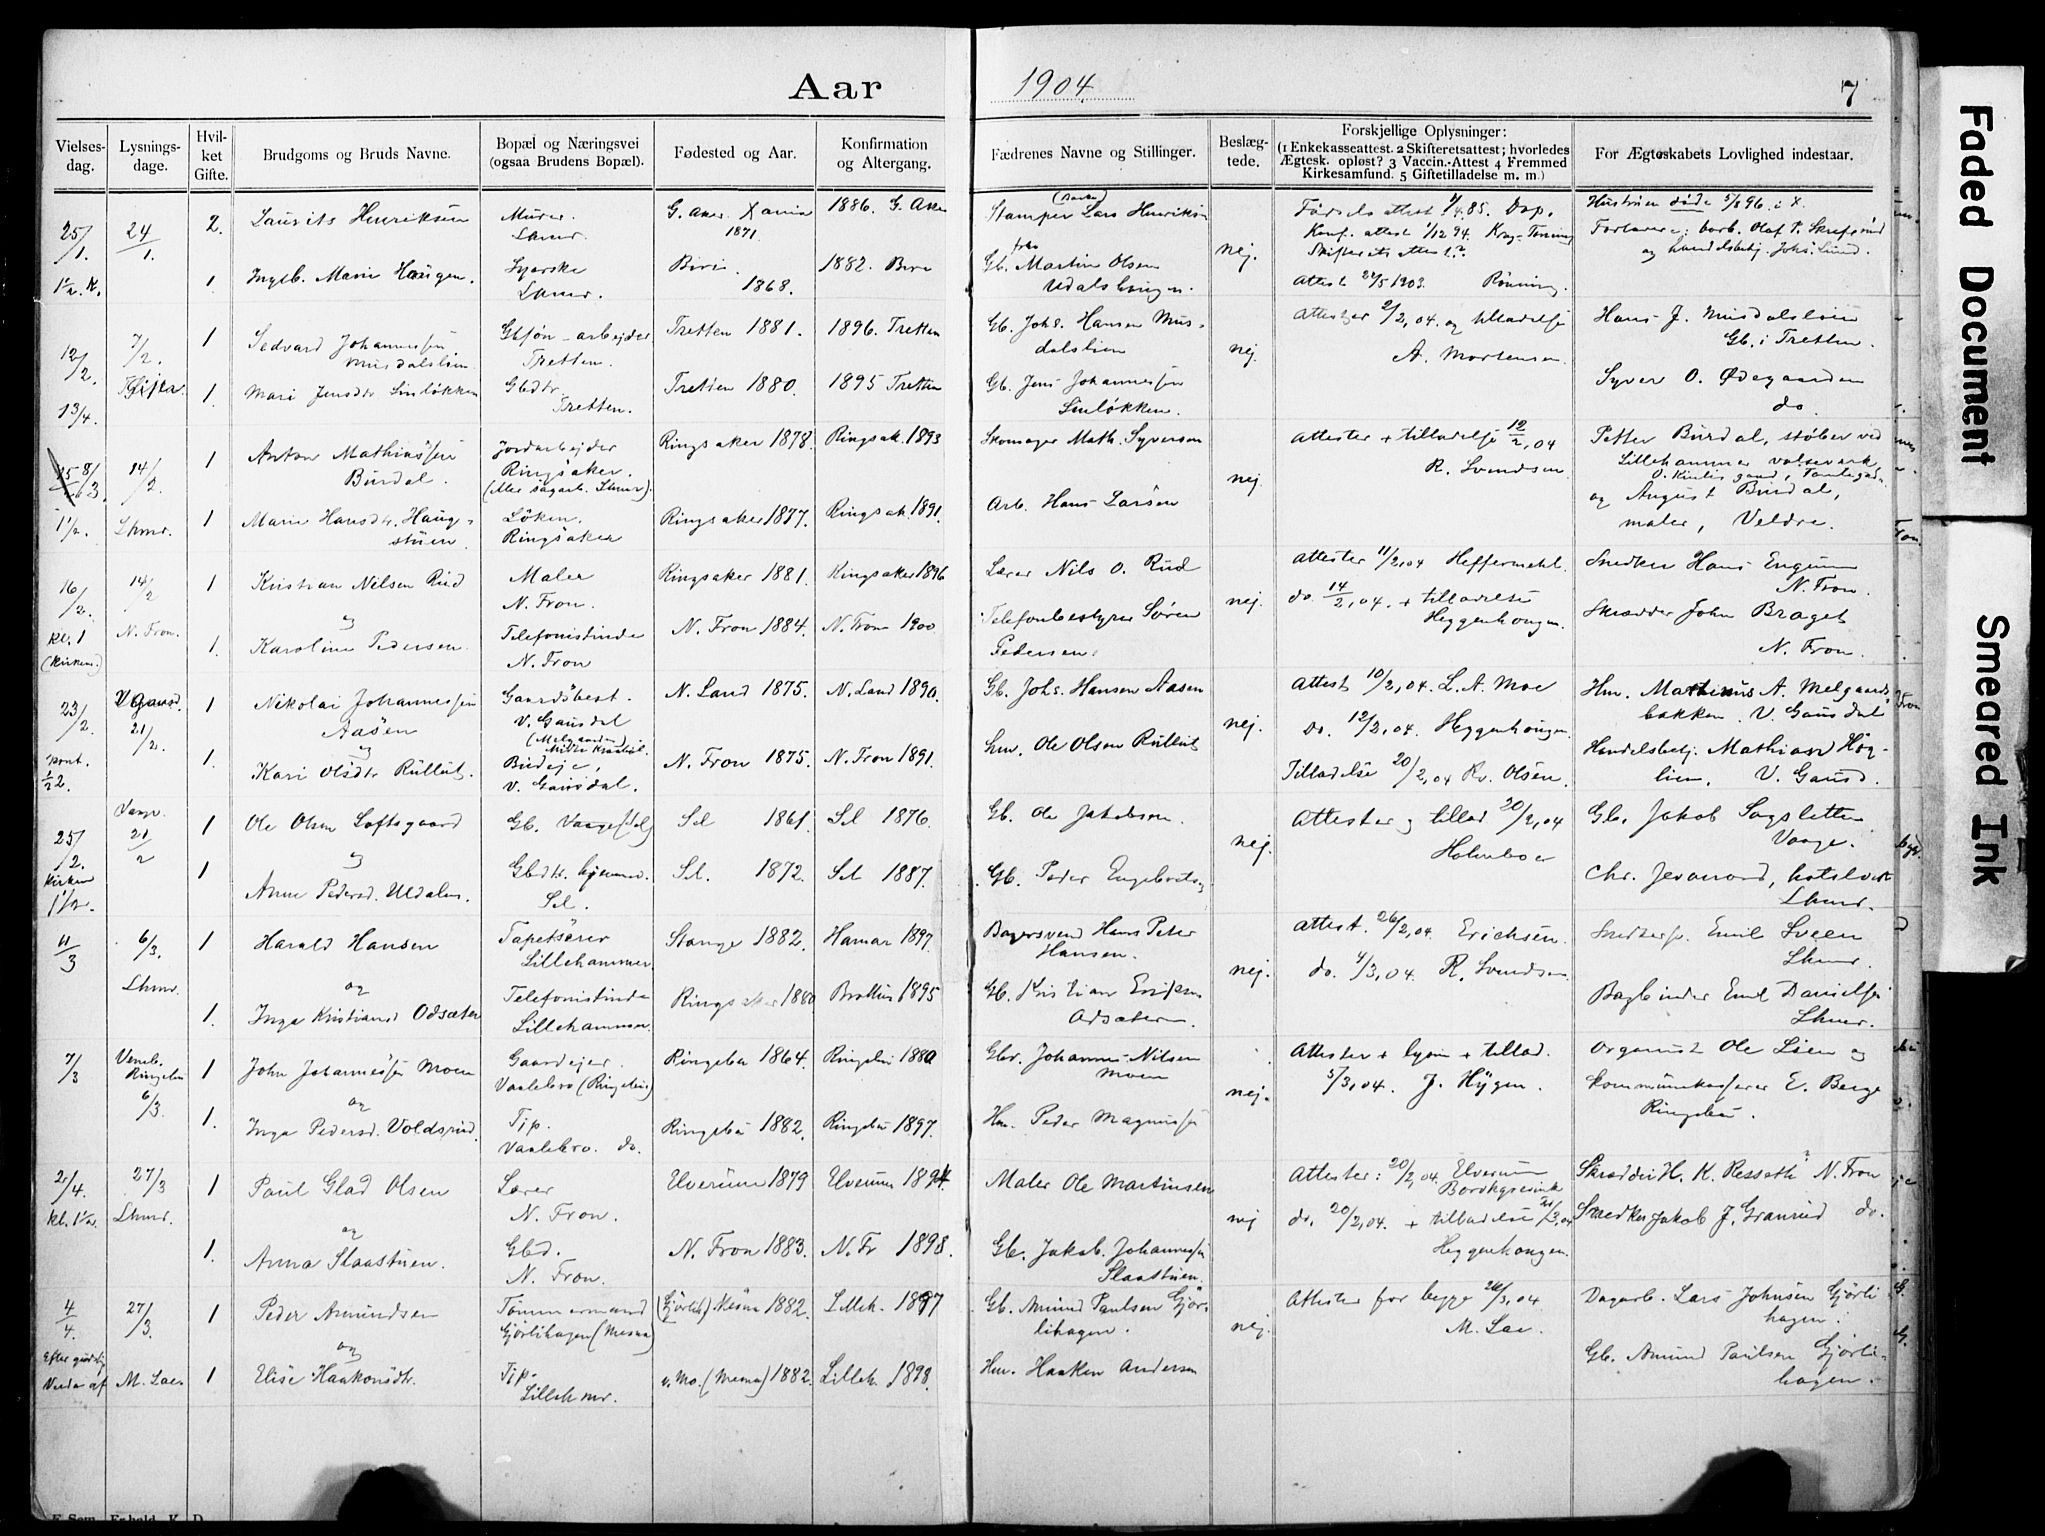 Aar 1904
7
Vielses-dag.
Lysnings-dage.
Hvil-ket Gifte.
Brudgoms og Bruds Navne.
Bopæl og Næringsvei (ogsaa Brudens Bopæl).
Fødested og Aar.
Konfirmation og Altergang.
Fædrenes Navne og Stillinger.
Beslæg-tede.
Forskjellige Oplysninger: (1 Enkekasseattest. 2 Skifteretsattest; hvorledes Ægtesk. opløst? 3 Vaccin.-Attest 4 Fremmed Kirkesamfund. 5 Giftetilladelse m. m.)
For Ægteskabets Lovlighed indestaar.
25/1. 24/1. 2. Laurits Henriksen Murer. Lhmr. G. Aker 1871 1886. G. Aker Stamper Lars Henriksen nej.
Fødselsattest Konf. attest Skifteretsattest?
Hustruen døde i X. Forlovere: barb. Olaf P. Skrefsrud og handelsbetj. Johs. Lund.
1. Ingeb. Marie Haugen. Syerske Lhmr. Biri 1868. 1882. Biri Gb. Martin Olsen Attest 1903. Rønning.
12/2. 7/2. 1 Sedvard Johannessen Musdalslien Gbsøn - arbejder Tretten. Tretten 1881. 1896. Tretten Gb. Johs. Hansen Musdalslien nej. Attester 2/2, 04. og tilladelse A. Mortensen. Hans J. Musdalslien Gb. i Tretten.
13/4. 1. Mari Jensdtr Linløkken Gbdtr Tretten. Tretten 1880. 1895 Tretten Gb. Jens Johannessen Linløkken. Syver O. Ødegaarden do.
8/3 14/2. 1 Anton Mathiassen Burdal. Jordarbejder Ringsaker. Ringsaker 1878. Ringsak. 1893 Skomager Math. Syversen nej. Attester + tilladelse 12/2, 04 R. Svendsen Petter Burdal, støber ved Lillehammer valseverk
1 1/2. Lhmr. 1 Marie Hansdtr. Haugstuen Løken. Ringsaker Ringsaker 1877. Ringsak. 1891. Arb. Hans Larsen og August Burdal, maler, Veldre.
16/2. 14/2 1 Kristian Nilsen Rud Maler N. Fron. Ringsaker 1881. Ringsaker 1896 Lærer Nils O. Rud nej. Attester 11/2, 04 Heffermehl. Snedker Hans Engum N. Fron.
kl. 1 (Kirken.) N. Fron. og 1. Karoline Pedersen. Telefonistinde N. Fron N. Fron 1884. N. Fron 1900 Telefonbestyrer Søren Pedersen. do. 14/2, 04. + tilladelse Heggenhougen. Skrædder John Braget N. Fron.
23/2. V. Gausd. 21/2. 1 Nikolai Johannessen Aasen Gaardsbest. V. Gausdal N. Land 1875. N. Land 1890. Gb. Johs. Hansen Aasen nej. Attest 10/2, 04. L. A. Moe Hm. Martinus A. Melgaardsbakken. V. Gausdal
og 1. Kari Olsdtr Rullut. Budeje, V. Gausdal. N. Fron 1875. N. Fron 1891. Hm. Ole Olsen Rullut do. 12/2, 04. Heggenhougen. Tilladelse 20/2, 04 Olsen. Handelsbetj. Mathias Høglien, V. Gausd.
25/2. Vaage. 21/2 1 Ole Olsen Loftsgaard Gb. Vaage Sel 1861 Sel 1876. Gb. Ole Jakobsen. nej. Attester og tillad 20/2, 04 Holmboe Gb. Jakob Sagsletten Vaage.
Kirken 1 1/2. og 1 Anne Pedersd. Uldalen. Gbdtr. hjemme. Sel. Sel. 1872. Sel 1887. Gb. Peder Engebrets. Chr. Jevanord, hotelvært Lhmr.
11/3 6/3. Lhmr. 1 Harald Hansen Tapetserer Lillehammer. Stange 1882. Hamar 1897. Bagersvend Hans Peter Hansen. nej. Attest. 26/2, 04. Erichsen. Snedkersv. Emil Sveen Lhmr.
og 1. Inga Kristiansd Odsæter Telefonistinde Lillehammer. Ringsaker 1880 Brøttum 1895 Gb. Kristian Eriksen Odsæteren. do. 4/3, 04. R. Svendsen Bagbinder Emil Danielsen Lhmr.
7/3 Venab. Ringebu 6/3. 1 John Johannessen Moen Gaardejer. Vaalebro (Ringebu) Ringebu 1864. Ringebu 1880 Gbr. Johannes Nilsen Moen nej. Attester + lysn + tillad. 5/3, 04. J. Hygen. Organist Ole Lien og kommunekasserer E. Berge Ringebu.
og 1. Inga Pedersd. Voldsrud. Tjp. Vaalebro. do. Ringebu 1882. Ringebu 1897. Hm. Peder Magnussen
2/4. 27/3 1 Paul Glad Olsen Lærer N. Fron. Elverum 1879 Elverum 1894. Maler Ole Martinsen nej Attester: 20/2, 04. Elverum Skrædder H. K. Resseth N. Fron
kl. 1 1/2. Lhmr. og 1. Anna Slaastuen. Gbd. N. Fron. N. Fron 1883. N. Fr 1898. Gb. Jakob Johannessen Slaastuen. do. 20/2, 04. + tilladelse Heggenhougen. Snedker Jakob J. Granrud do.
4/4. 27/3. 1 Peder Amundsen Tømmermand Gjørlihagen (Mesna) (Gjørlih.) Mesna 1882. Lilleh. 1897 Gb. Amund Paulsen Gjørlihagen. nej. Attester for begge 26/3, 04. M. Lae. Dagarb. Lars Johnsen Gjørlihagen.
M. Lae. og 1 Elise Haakonsdtr. Tjp. Lillehmr. (Mesna) 1882. Lilleh. 1898. Hm. Haaken Andersen Gb. Amund Paulsen Gjørlihagen.
Faded Document
Smeared Ink